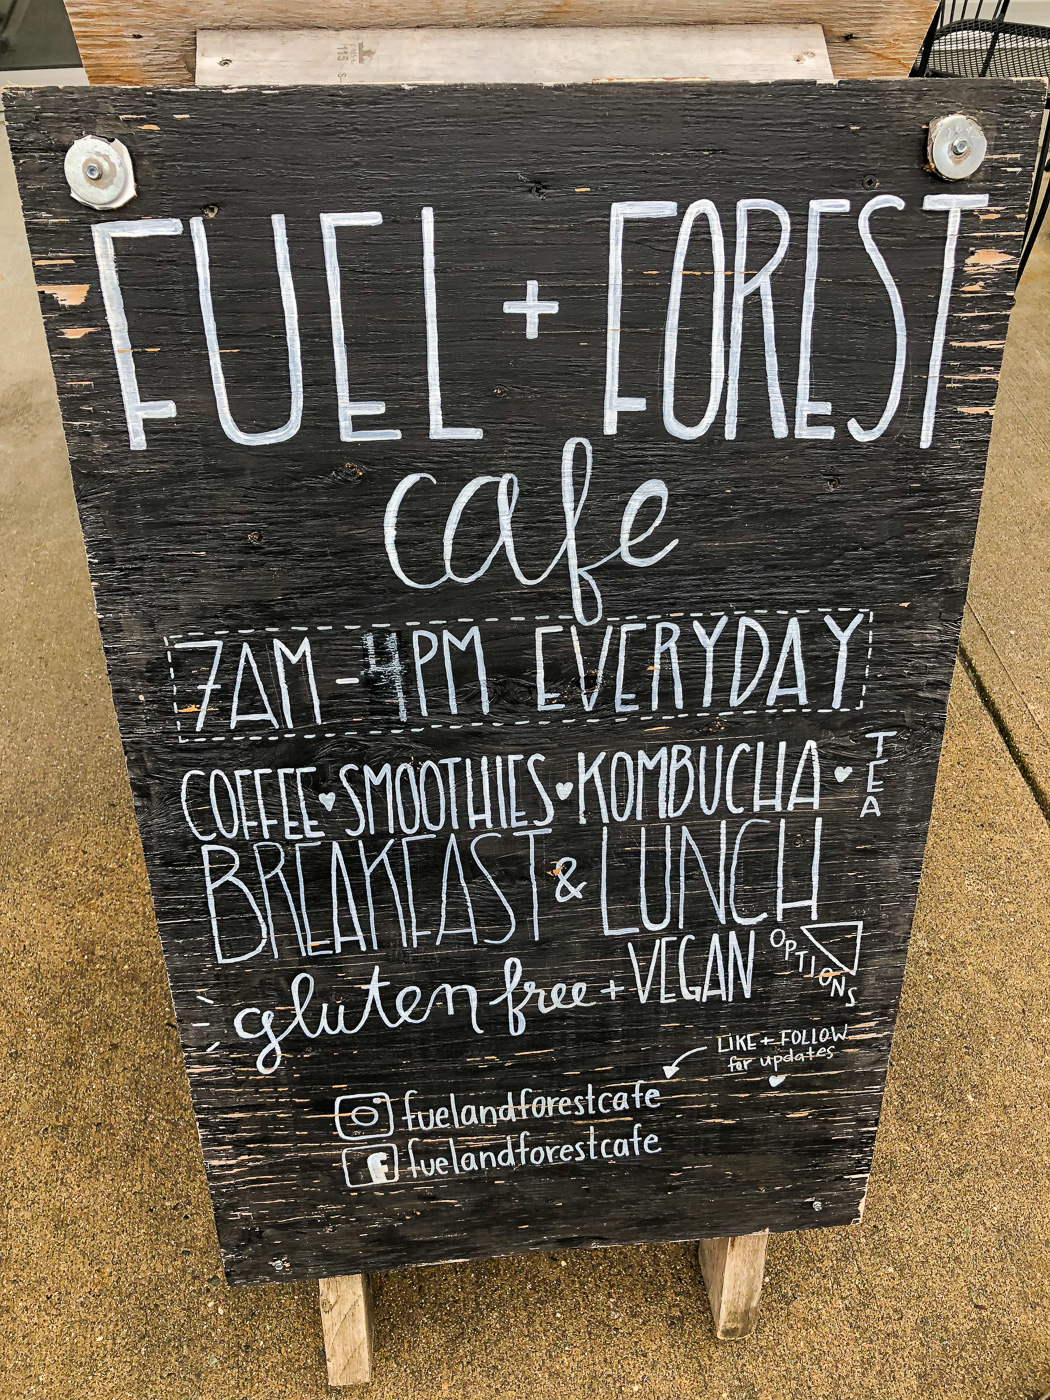 FUEL + FOREST
cafe
7AM - 4PM EVERYDAY
COFFEE ♥ SMOOTHIES ♥ KOMBUCHA ♥ TEA
BREAKFAST & LUNCH
gluten free + VEGAN OPTIONS
LIKE + FOLLOW
for updates
fuelandforestcafe
fuelandforestcafe